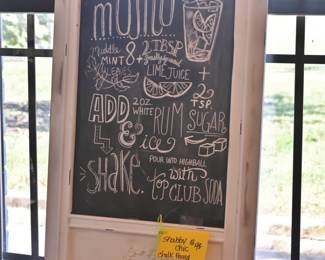 mojito
Muddle 8 + 2 TBSP
MINT
LEAVES
LIME JUICE +
2
TSP.
SUGAR
ADD 2 OZ.
WHITE RUM
& ice
SHAKE.
POUR INTO HIGHBALL
with
TOP CLUB SODA
Shabby
Chic
Chalk Board